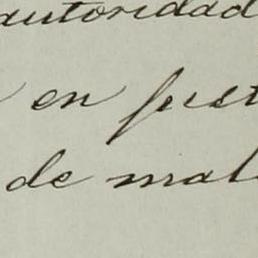 autoridad
en just
de mal